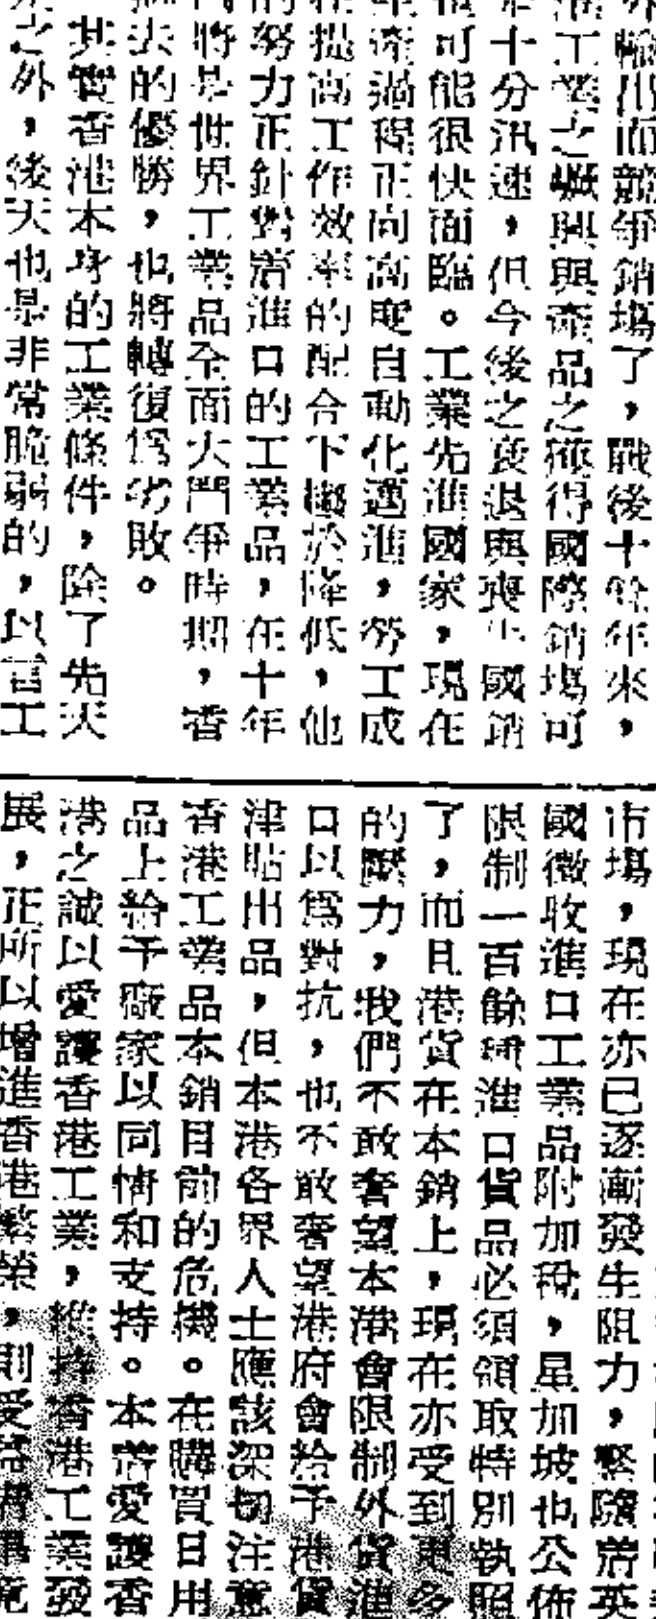 外輸出而競爭銷塲了，戰後十餘年來，
港工業之蹶興與產品之獲得國際銷塲可
十分汛速，但今後之衰退與喪失國銷
也可能很快面臨。工業先進國家，現在
生產過程正向高度自動化邁進，勞工成
在提高工作效率的配合下趨於降低，他
的努力正針對着進口的工業品，在十年
將是世界工業品全面大鬥爭時期，香
去的優勝，也將轉復爲劣敗。
其實香港本身的工業條件，除了先天
之外，後天也是非常脆弱的，以言工
市塲，現在亦已逐漸發生阻力，緊隨着英
國徵收進口工業品附加稅，星加坡也公佈
限制一百餘種進口貨品必須領取特別執照
了，而且港貨在本銷上，現在亦受到更多
的壓力，我們不敢奢望本港會限制外貨進
口以爲對抗，也不敢奢望港府會給予港貨
津貼出品，但本港各界人士應該深切注意
香港工業品本銷目前的危機。在購買日用
品上給予廠家以同情和支持。本着愛護香
港之誠以愛護香港工業，維持香港工業發
展，正所以增進香港繁榮，則受